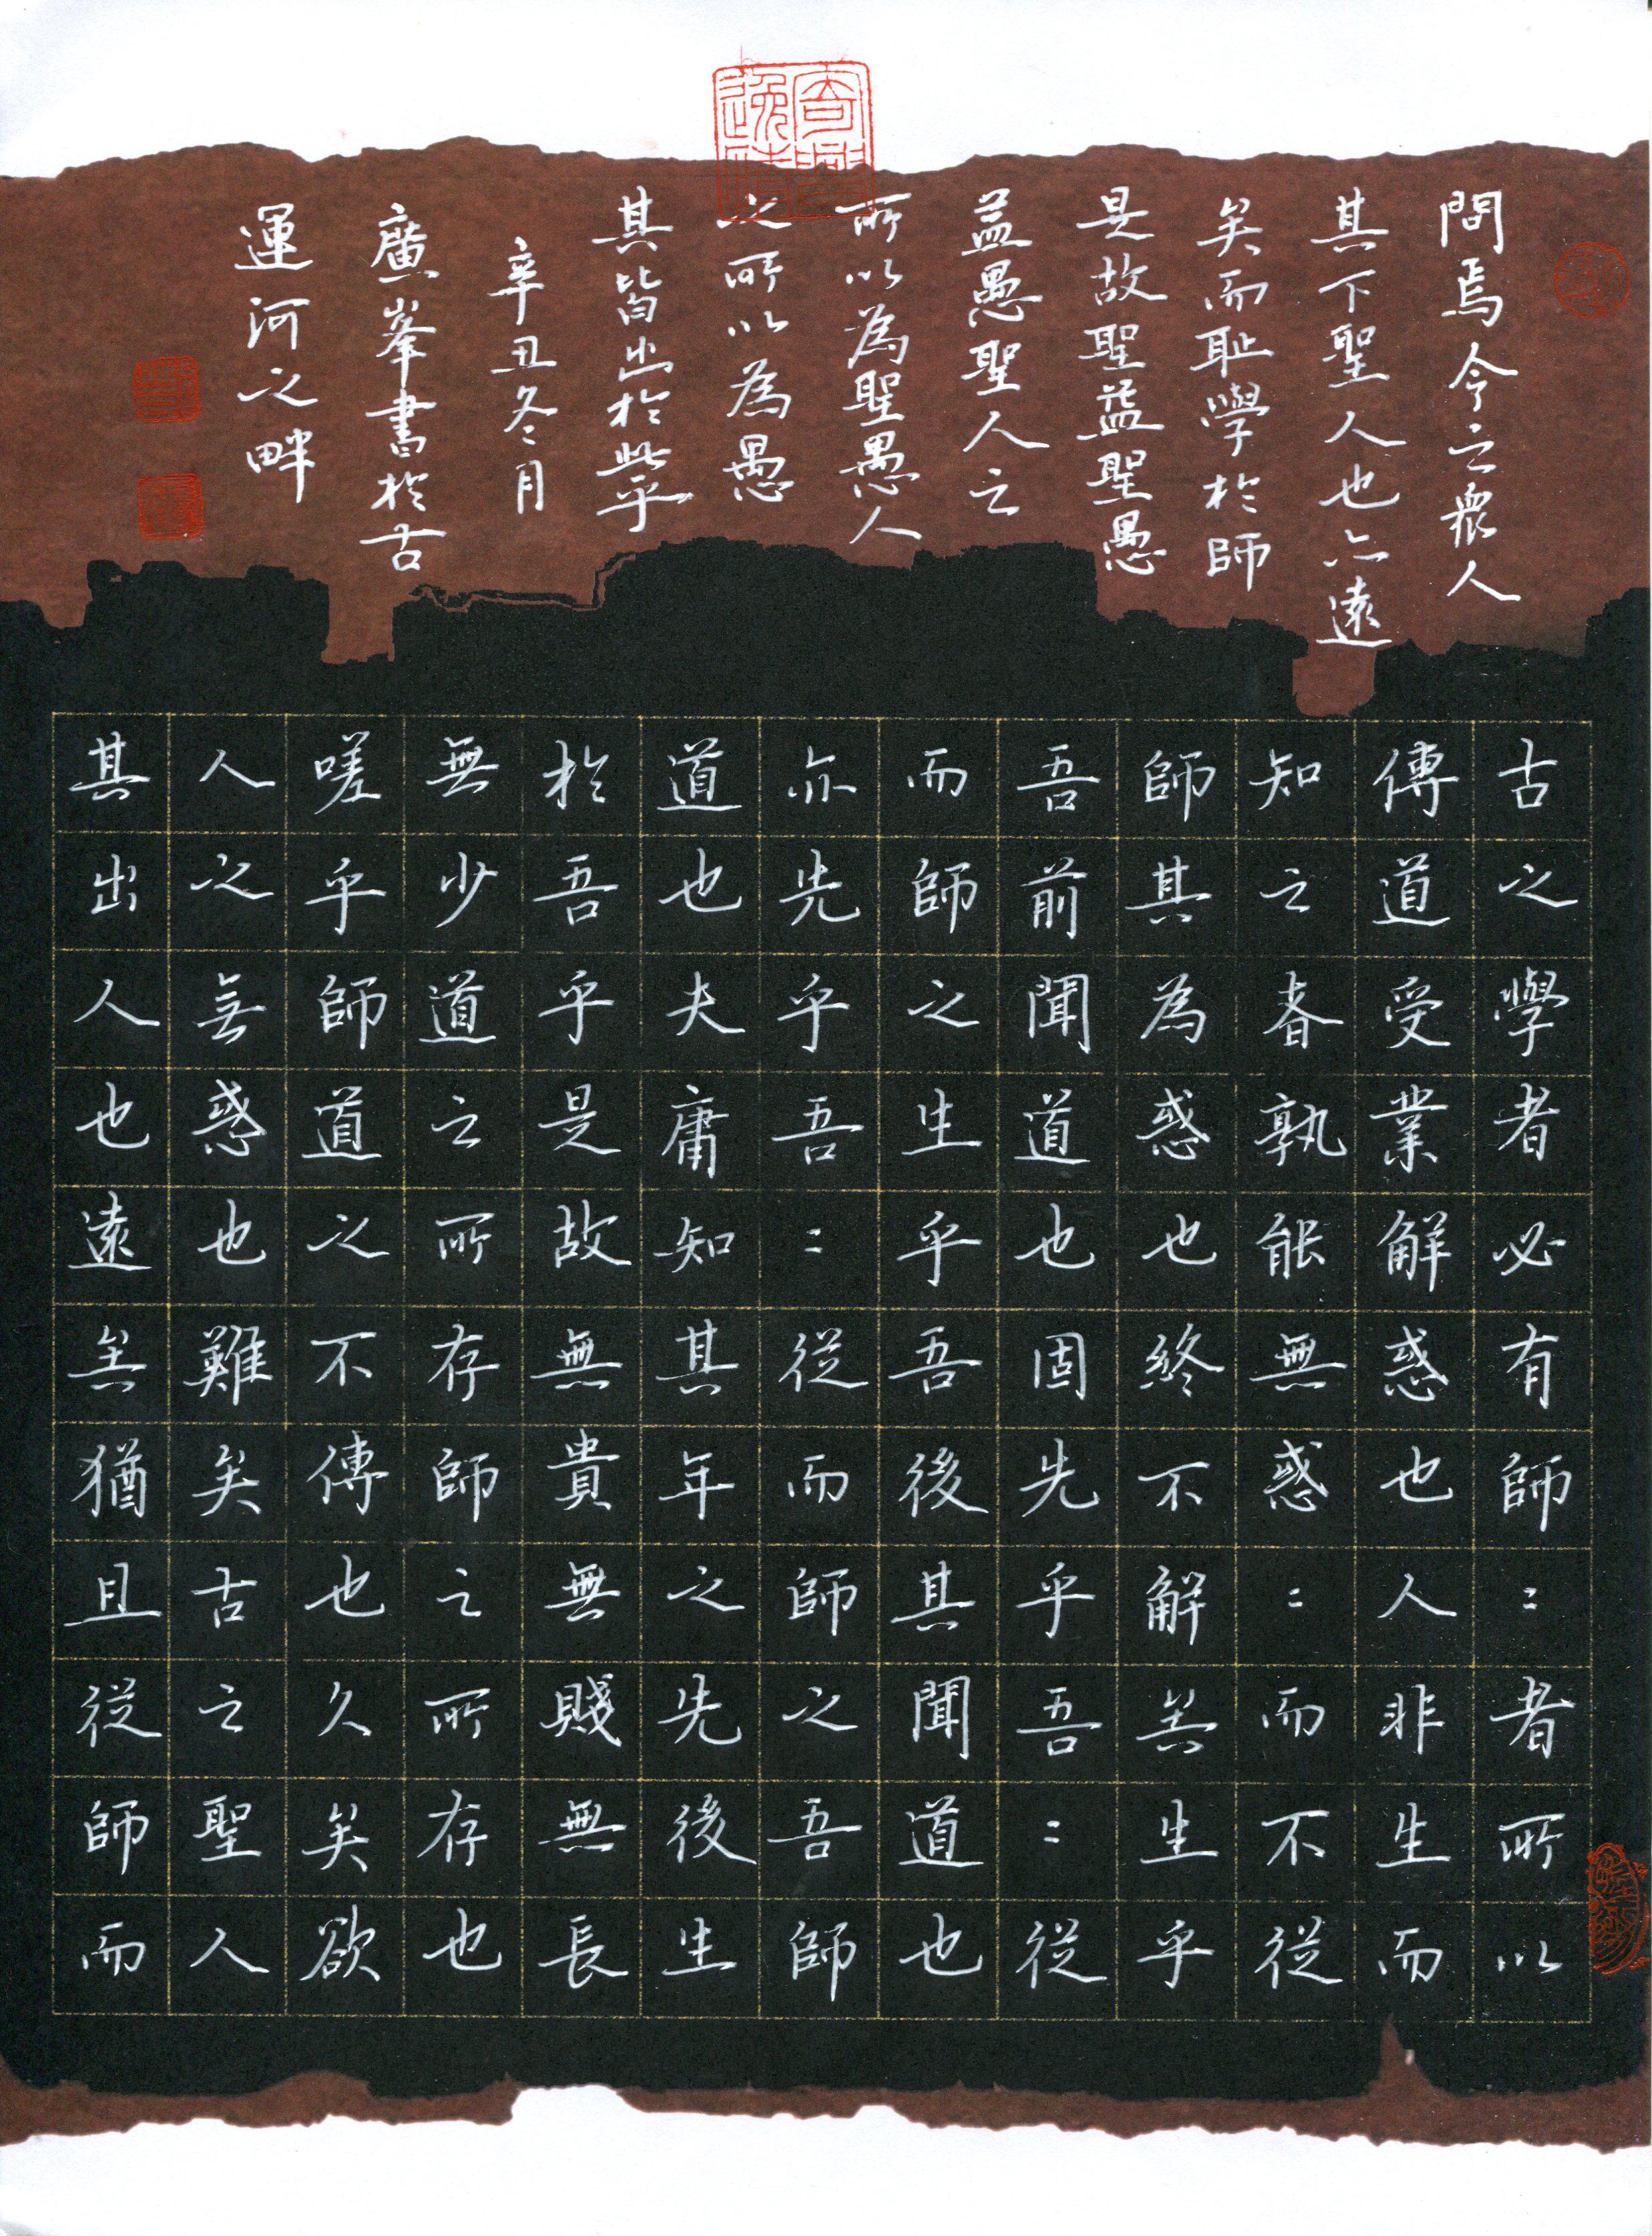 古之學者必有師：者所以
傳道受業解惑也人非生而
知之者孰能無惑：而不從
師其為惑也終不解矣生乎
吾前聞道也固先乎吾：從
而師之生乎吾後其聞道也
亦先乎吾：從而師之吾師
道也夫庸知其年之先後生
於吾乎是故無貴無賤無長
無少道之所存師之所存也
嗟乎師道之不傳也久矣欲
人之無惑也難矣古之聖人
其出人也遠矣猶且從師而
問焉今之眾人
其下聖人也亦遠
矣而耻學於師
是故聖益聖愚
益愚聖人之
所以為聖愚人
之所以為愚
其皆出於此乎
辛丑冬月
廣峯書於古
運河之畔